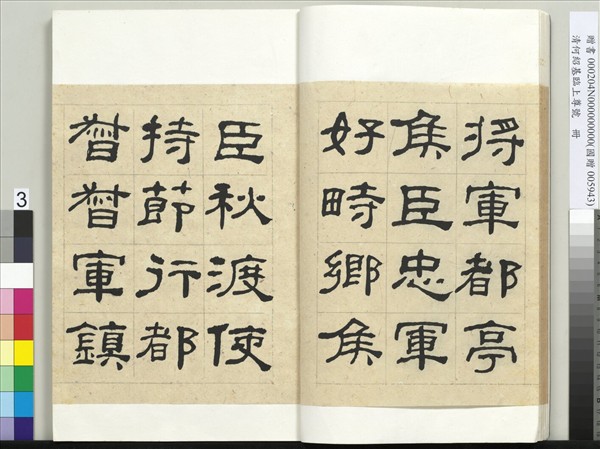 贈書 000204N000000000(國贈 005943)
清何紹基臨上尊號 冊
將軍都亭
侯臣忠軍
好畤鄉侯
臣秋渡使
持節行都
督督軍鎮
3